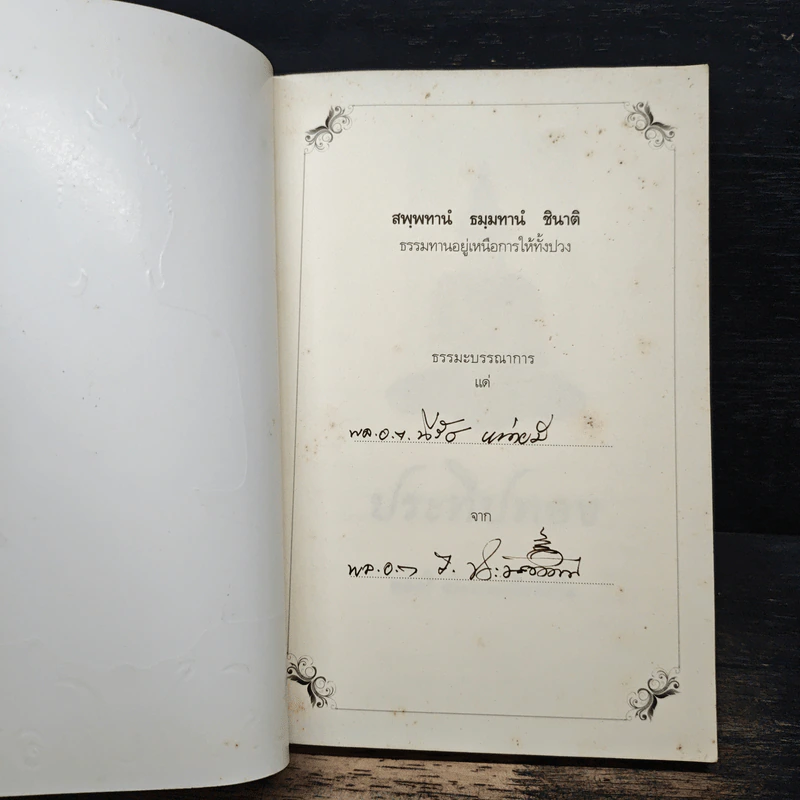 สพฺพทานํ ธมฺมทานํ ชินาติ
ธรรมทานอยู่เหนือการให้ทั้งปวง
ธรรมะบรรณาการ
แด่
พล.อ.
จาก
พล.อ.